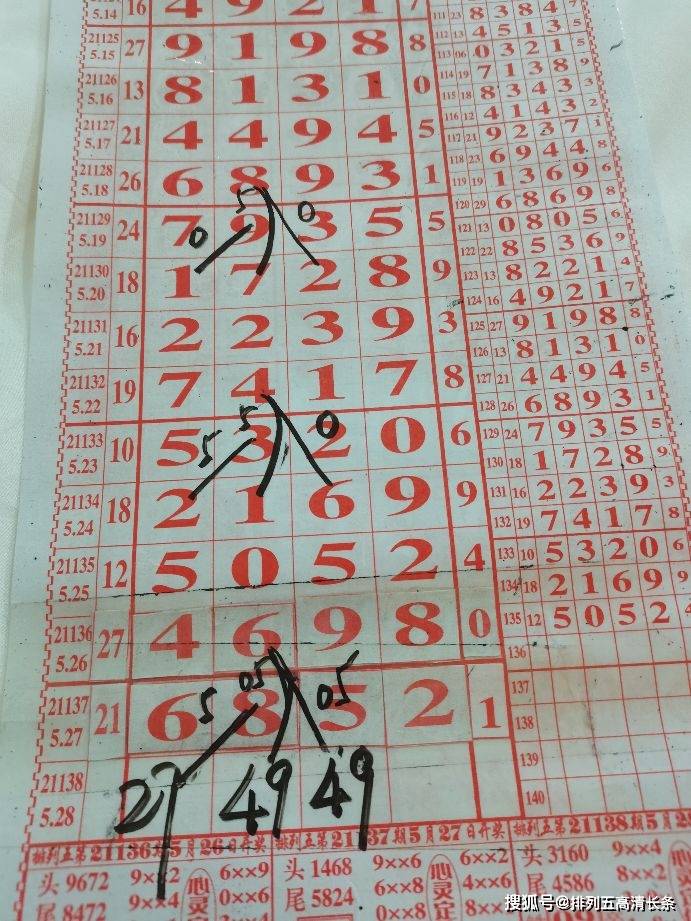 5.14 16 4 9 2 1 7
21125 5.15 27 9 1 9 8 8
21126 5.16 13 8 1 3 1 0
21127 5.17 21 4 4 9 4 5
21128 5.18 26 6 8 9 3 1
5
21129 5.19 24 7 9 3 5 5
0 0
21130 5.20 18 1 7 2 8 9
21131 5.21 16 2 2 3 9 3
21132 5.22 19 7 4 1 7 8
21133 5.23 10 5 3 2 0 6
5 5 0
21134 5.24 18 2 1 6 9 9
21135 5.25 12 5 0 5 2 4
21136 5.26 27 4 6 9 8 0
21137 5.27 21 6 8 5 2 1
5 05 05
21138 5.28
27 49 49
111 23 8 3 8 4 7
112 13 4 5 1 3 5
113 06 0 3 2 1 5
114 19 7 1 3 8 9
115 18 8 3 4 3 3
116 12 4 1 4 3 2
117 21 9 2 3 7 1
118 23 6 9 4 4 8
119 19 1 3 6 9 6
120 29 6 8 6 9 8
121 13 0 8 0 5 6
122 22 8 5 3 6 9
123 13 8 2 2 1 4
124 16 4 9 2 1 7
125 27 9 1 9 8 8
126 13 8 1 3 1 0
127 21 4 4 9 4 5
128 26 6 8 9 3 1
129 24 7 9 3 5 5
130 18 1 7 2 8 9
131 16 2 2 3 9 3
132 19 7 4 1 7 8
133 10 5 3 2 0 6
134 18 2 1 6 9 9
135 12 5 0 5 2 4
136
137
138
139
140
排列五第21136期5月26日开奖 排列五第21137期5月27日开奖 排列五第21138期5月28
头 9672 6××9 头 1468 9××6 6××2 头 3160 9××4
尾 8472 9××4 0××6 尾 5824 6××8 4××6 尾 4586 8××2
心灵 心灵
搜狐号@排列五高清长条